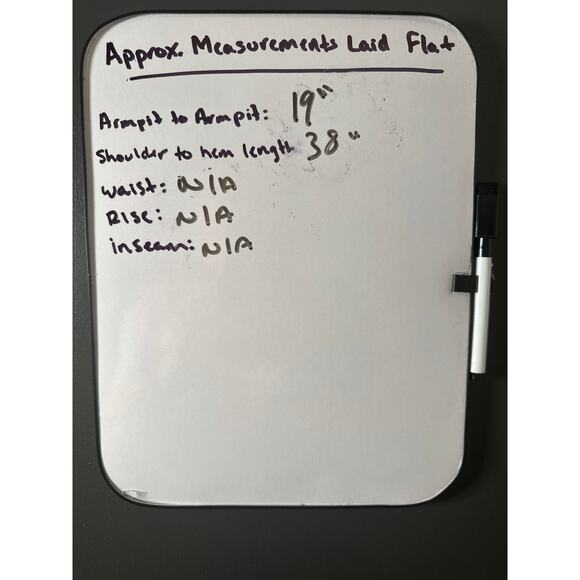 Approx. Measurements Laid Flat
Armpit to Armpit: 19"
Shoulder to hem length 38"
waist: N/A
Rise: N/A
inseam: N/A